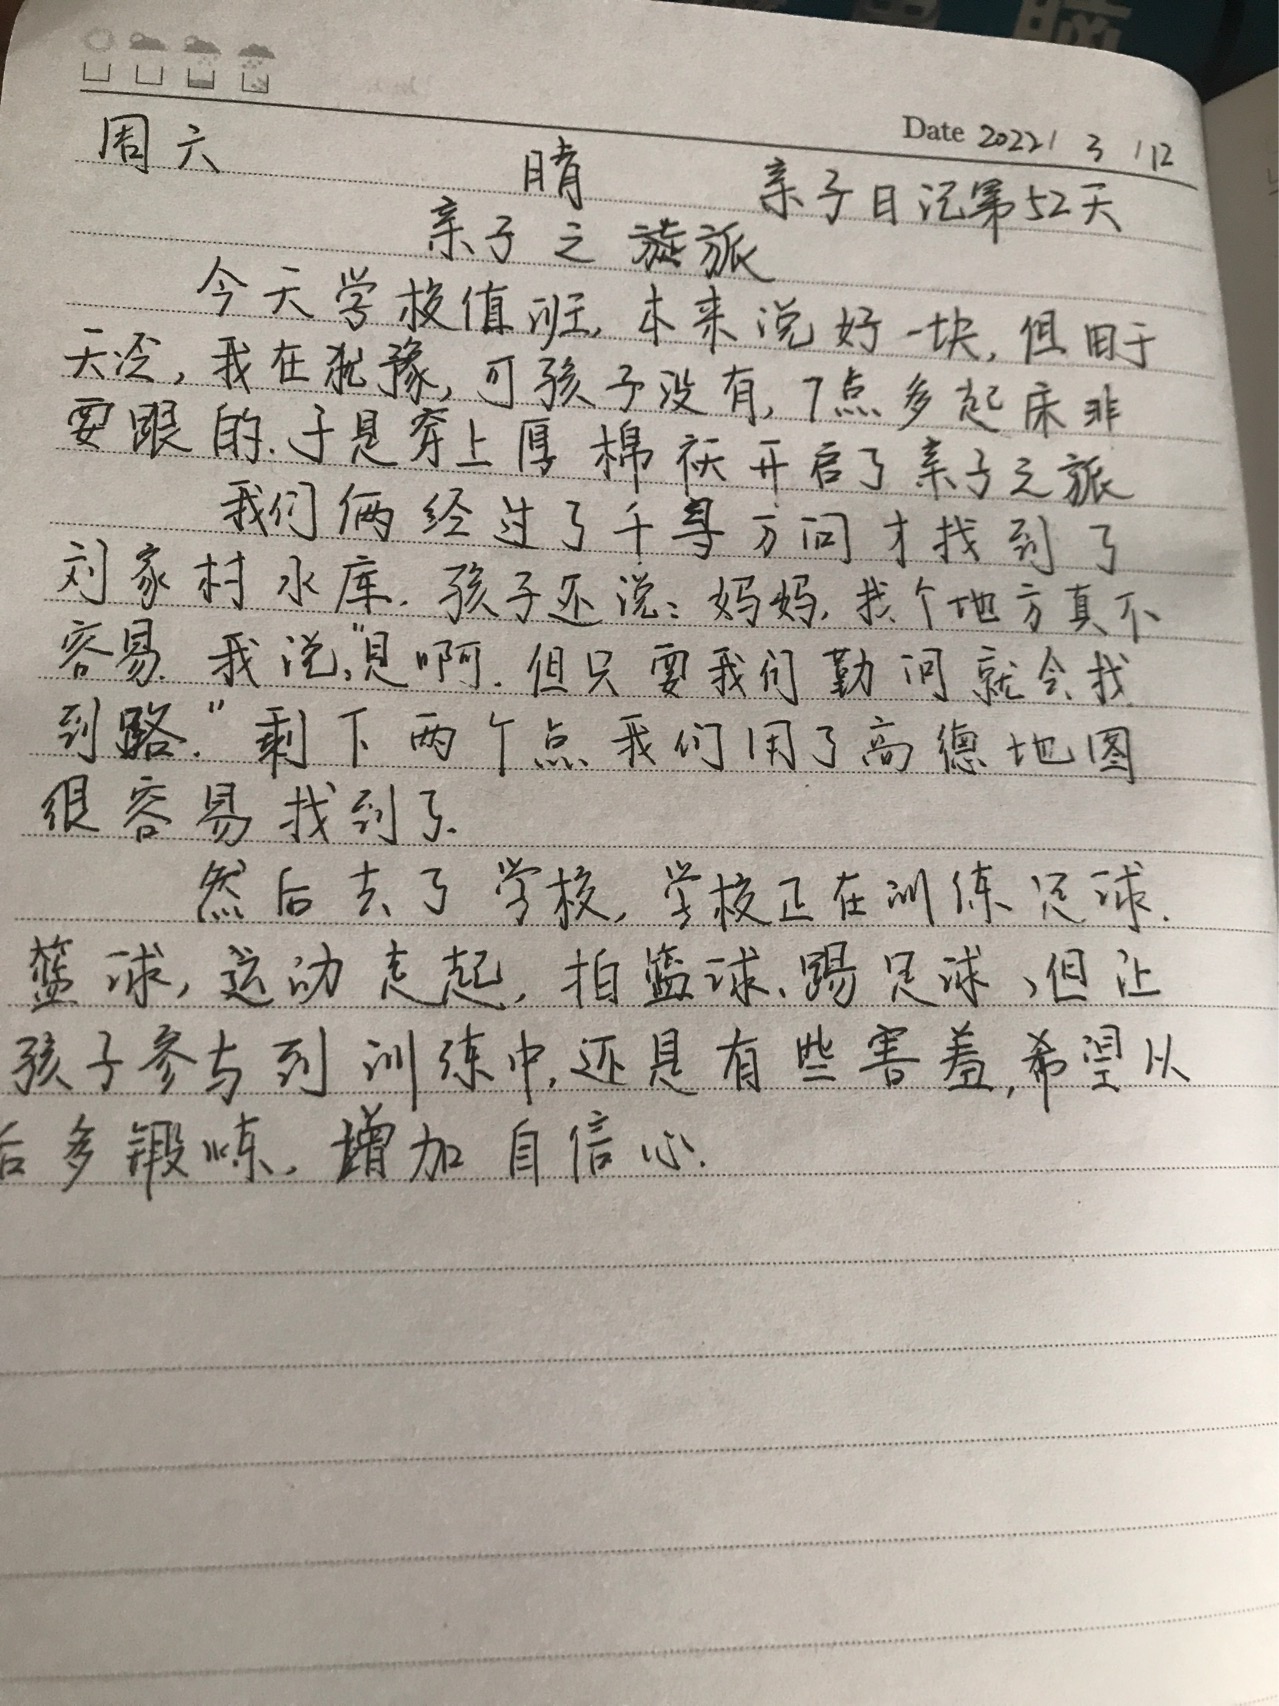 Date 2022/ 3 /12
周六 晴 亲子日记第52天
亲子之旅
今天学校值班,本来说好一块,但由于
天冷,我在犹豫,可孩子没有,7点多起床非
要跟的.于是穿上厚棉袄开启了亲子之旅
我们俩经过了千寻万问才找到了
刘家村水库.孩子还说:妈妈,找个地方真不
容易.我说,"是啊.但只要我们勤问就会找
到路."剩下两个点我们用了高德地图
很容易找到了.
然后去了学校,学校正在训练足球.
篮球,运动走起,拍篮球、踢足球,但让
孩子参与到训练中,还是有些害羞,希望从
后多锻炼,增加自信心.